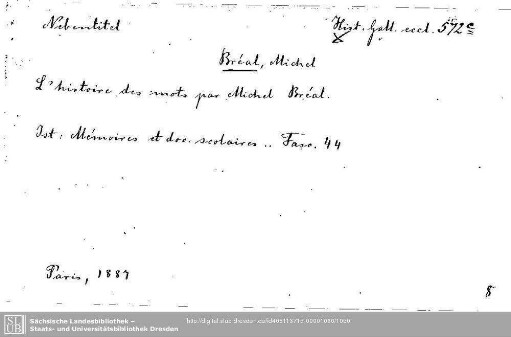 Nebentitel Hist. Gall. eccl. 572 e
Bréal, Michel
L'histoire des mots par Michel Bréal.
Ist: Mémoires et doc. scolaires .. Fasc. 44
Paris, 1887
8
SLUB Sächsische Landesbibliothek –
Staats- und Universitätsbibliothek Dresden